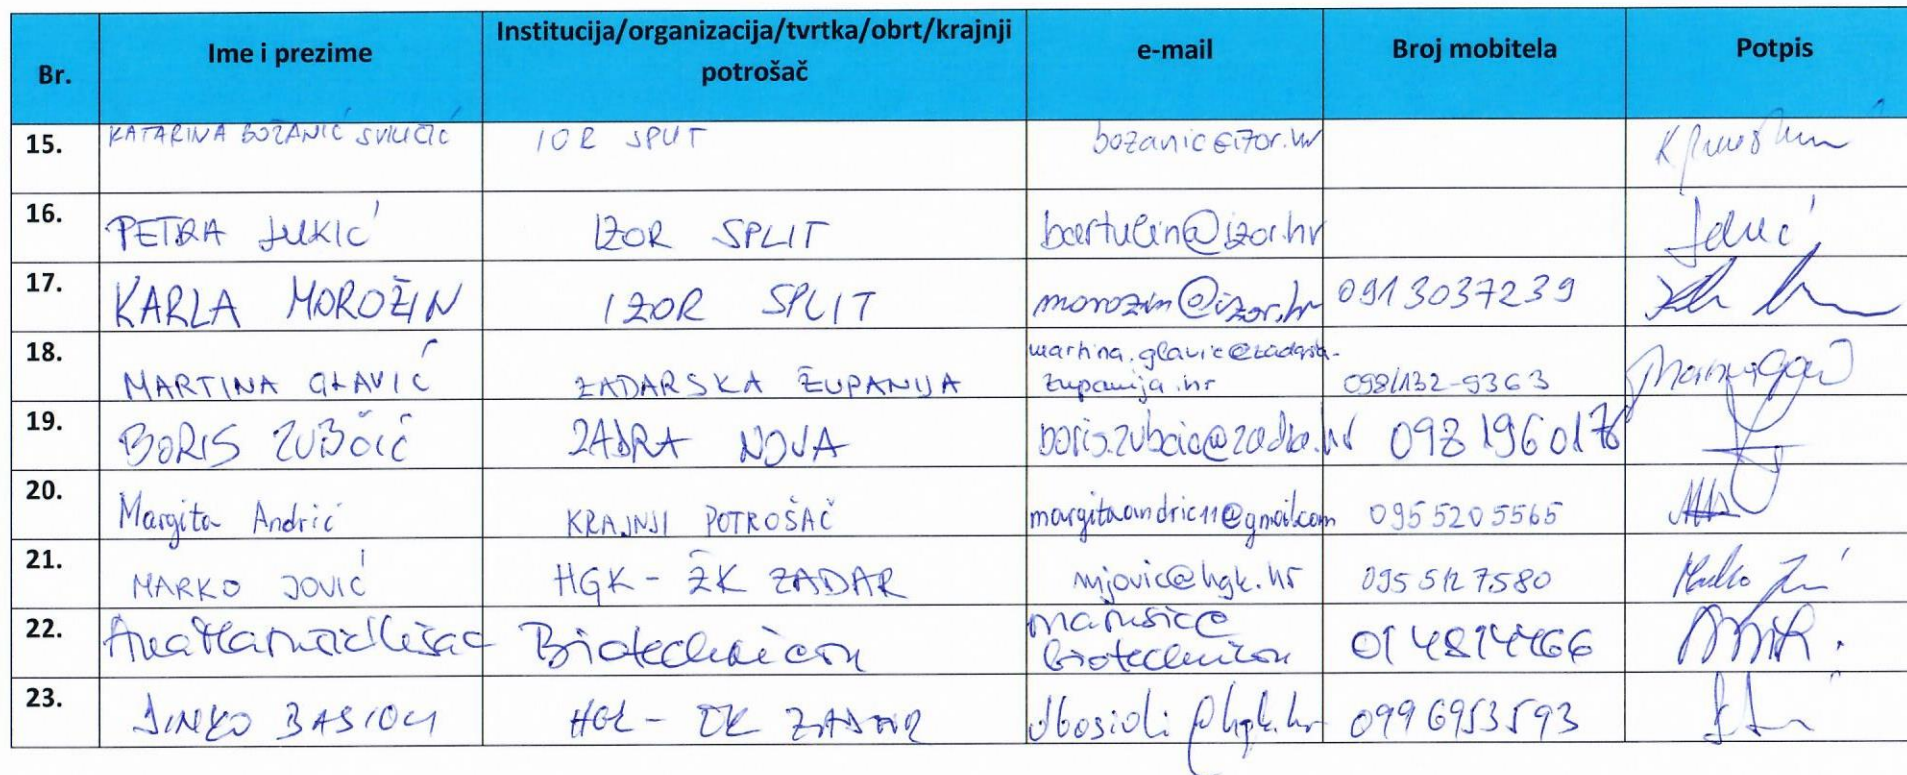 Br. Ime i prezime Institucija/organizacija/tvrtka/obrt/krajnji potrošač e-mail Broj mobitela Potpis
15. KATARINA BOŽANIĆ SVILIČIĆ IOR SPLIT bozanic@izor.hr
16. PETRA JUKIĆ IZOR SPLIT bartulin@izor.hr
17. KARLA MOROŽIN IZOR SPLIT morozin@izor.hr 0913037239
18. MARTINA GLAVIĆ ZADARSKA ŽUPANIJA martina.glavic@zadarska-
zupanija.hr 098/132-9363
19. BORIS ZUBČIĆ ZADRA NOVA boris.zubcic@zadra.hr 098 1960176
20. Margita Andrić KRAJNJI POTROŠAČ margitaandric11@gmail.com 0955205565
21. MARKO JOVIĆ HGK - ŽK ZADAR mjovic@hgk.hr 095 5127580
22. Ana Biotechnicon marusic@
biotechnicon 014814466
23. HGK - ŽK ZADAR 0996953593